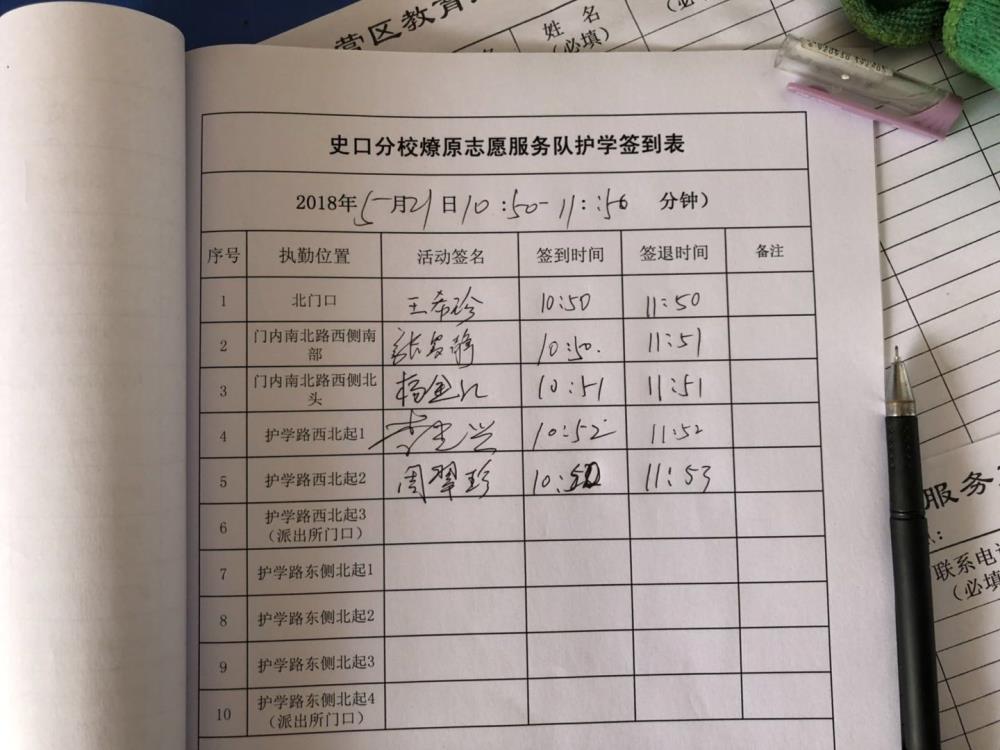 营区教育
姓 名
(必填)
史口分校燎原志愿服务队护学签到表
2018年5月21日10:50-11:56 分钟)
序号 执勤位置 活动签名 签到时间 签退时间 备注
1 北门口 王希珍 10:50 11:50
2 门内南北路西侧南部 10:50. 11:51
3 门内南北路西侧北头 10:51 11:51
4 护学路西北起1 10:52 11:52
5 护学路西北起2 周翠珍 10: 11:53
6 护学路西北起3
(派出所门口)
7 护学路东侧北起1
8 护学路东侧北起2
9 护学路东侧北起3
10 护学路东侧北起4
(派出所门口)
服务
联系电话
(必填